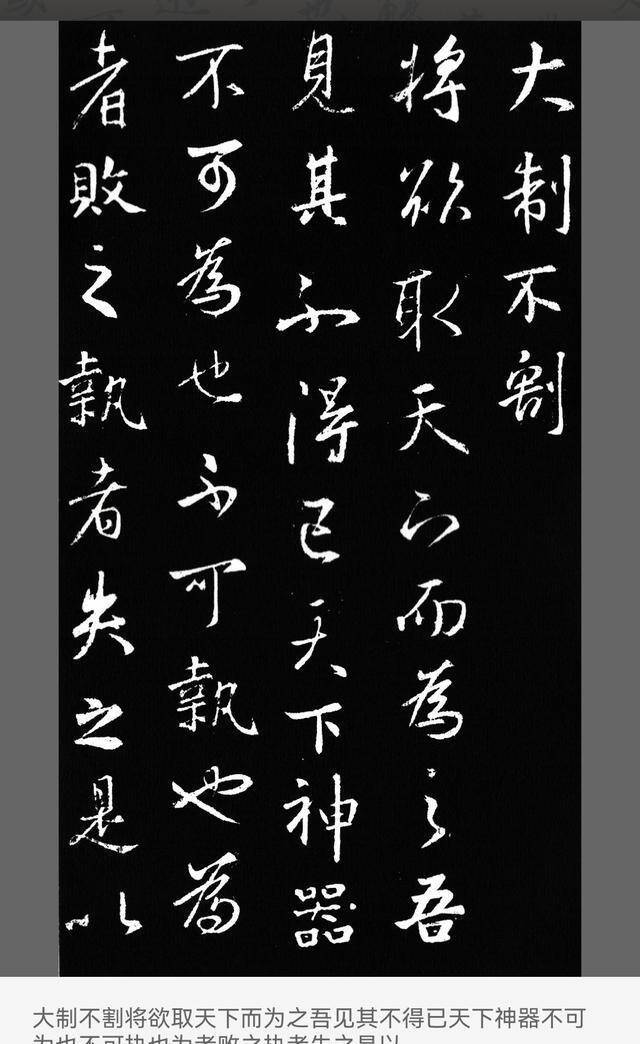 大制不割
將欲取天下而為之吾
見其不得已天下神器
不可為也不可執也為
者敗之執者失之是以
大制不割将欲取天下而为之吾见其不得已天下神器不可
为也不可执也为者败之执者失之是以